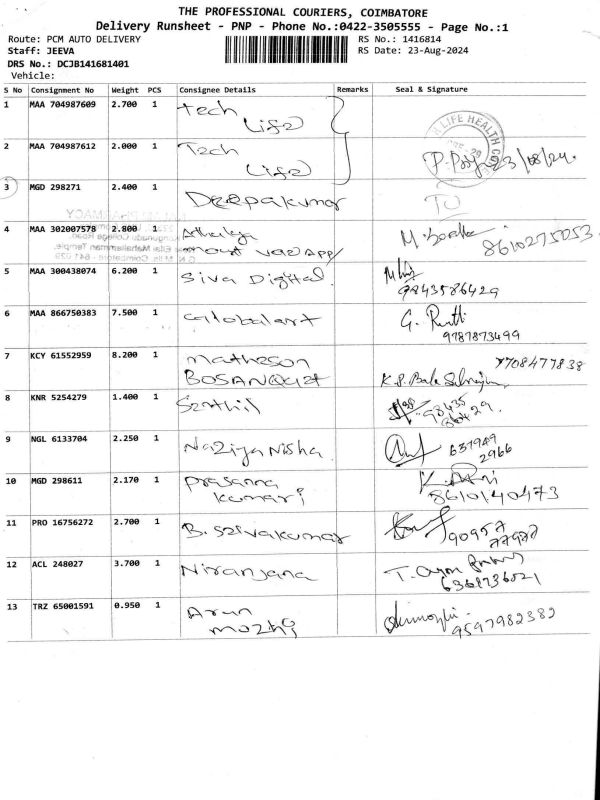 THE PROFESSIONAL COURIERS, COIMBATORE
Delivery Runsheet - PNP - Phone No.:0422-3505555 - Page No.:1
Route: PCM AUTO DELIVERY RS No.: 1416814
Staff: JEEVA RS Date: 23-Aug-2024
DRS No.: DCJB141681401
Vehicle:
S No Consignment No Weight PCS Consignee Details Remarks Seal & Signature
1 MAA 704987609 2.700 1 Tech
Life
2 MAA 704987612 2.000 1 Tech
Life 23/08/24
3 MGD 298271 2.400 1 Deepakumar
4 MAA 302007578 2.800 1
8610275053
5 MAA 300438074 6.200 1 Siva Digital
9843586429
6 MAA 866750383 7.500 1 Globalart
9787873499
7 KCY 61552959 8.200 1 Matheson 7708477838
BOSANQUET
8 KNR 5254279 1.400 1 Senthil 98435
86429.
9 NGL 6133704 2.250 1 Naziya Nisha 637949
2966
10 MGD 298611 2.170 1 Prasanna
Kumari 8610140473
11 PRO 16756272 2.700 1 B. Selvakumar 90957
77977
12 ACL 248027 3.700 1 Niranjana
6369736021
13 TRZ 65001591 0.950 1 Arun
mozhi 9597982382